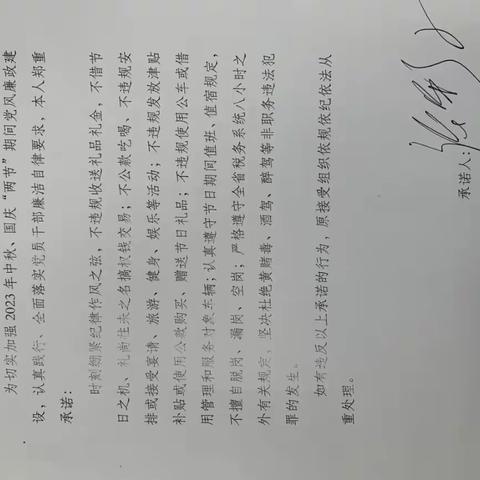 为切实加强 2023 年中秋、国庆“两节”期间党风廉政建
设，认真践行、全面落实党员干部廉洁自律要求，本人郑重
承诺：
时刻绷紧纪律作风之弦，不违规收送礼品礼金，不借节
日之机、礼尚往来之名搞权钱交易；不公款吃喝、不违规安
排或接受宴请、旅游、健身、娱乐等活动；不违规发放津贴
补贴或使用公款购买、赠送节日礼品；不违规使用公车或借
用管理和服务对象车辆；认真遵守节日期间值班、值宿规定，
不擅自脱岗、漏岗、空岗；严格遵守全省税务系统八小时之
外有关规定，坚决杜绝黄赌毒、酒驾、醉驾等非职务违法犯
罪的发生。
如有违反以上承诺的行为，愿接受组织依规依纪依法从
重处理。
承诺人：